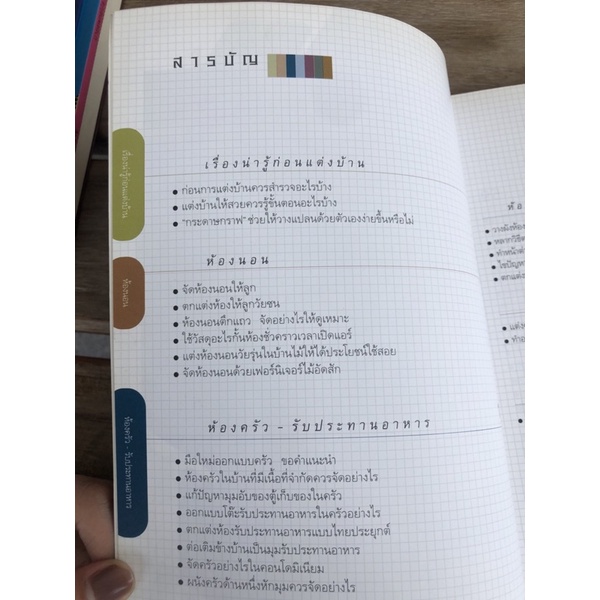 สารบัญ
เรื่องน่ารู้ก่อนแต่งบ้าน
เรื่องน่ารู้ก่อนแต่งบ้าน
• ก่อนการแต่งบ้านควรสำรวจอะไรบ้าง
• แต่งบ้านให้สวยควรรู้ขั้นตอนอะไรบ้าง
• "กระดาษกราฟ" ช่วยให้วางแปลนด้วยตัวเองง่ายขึ้นหรือไม่
ห้องนอน
ห้องนอน
• จัดห้องนอนให้ลูก
• ตกแต่งห้องให้ลูกวัยซน
• ห้องนอนตึกแถว จัดอย่างไรให้ดูเหมาะ
• ใช้วัสดุอะไรกั้นห้องชั่วคราวเวลาเปิดแอร์
• แต่งห้องนอนวัยรุ่นในบ้านไม้ให้ได้ประโยชน์ใช้สอย
• จัดห้องนอนด้วยเฟอร์นิเจอร์ไม้อัดสัก
ห้องครัว - รับประทานอาหาร
ห้องครัว - รับประทานอาหาร
• มือใหม่ออกแบบครัว ขอคำแนะนำ
• ห้องครัวในบ้านที่มีเนื้อที่จำกัดควรจัดอย่างไร
• แก้ปัญหามุมอับของตู้เก็บของในครัว
• ออกแบบโต๊ะรับประทานอาหารในครัวอย่างไร
• ตกแต่งห้องรับประทานอาหารแบบไทยประยุกต์
• ต่อเติมข้างบ้านเป็นมุมรับประทานอาหาร
• จัดครัวอย่างไรในคอนโดมิเนียม
• ผนังครัวด้านหนึ่งหักมุมควรจัดอย่างไร